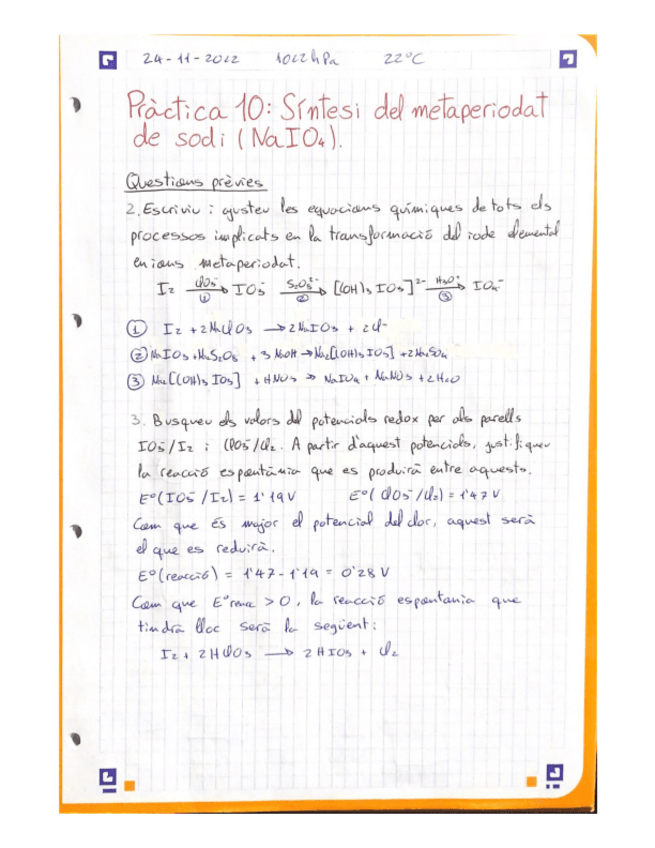 24-11-2022 1022 hPa 22°C
Pràctica 10: Síntesi del metaperiodat
de sodi (NaIO₄).
Questions prèvies
2. Escriviu i ajusteu les equacions químiques de tots els
processos implicats en la transformació del iode elemental
en ions metaperiodat.
I₂ —ClO₃⁻→ ① IO₃⁻ —S₂O₈²⁻→ ② [(OH)₃IO₃]²⁻ —H₃O⁺→ ③ IO₄⁻
① I₂ + 2NaClO₃ → 2NaIO₃ + 2Cl⁻
② NaIO₃ + Na₂S₂O₈ + 3NaOH → Na₂[(OH)₃IO₃] + 2Na₂SO₄
③ Na₂[(OH)₃IO₃] + HNO₃ → NaIO₄ + NaNO₃ + 2H₂O
3. Busqueu els valors del potencials redox per als parells
IO₃⁻/I₂ i ClO₃⁻/Cl₂. A partir d'aquest potencials, justifiqueu
la reacció espontània que es produirà entre aquests.
E°(IO₃⁻/I₂) = 1'19 V E°(ClO₃⁻/Cl₂) = 1'47 V
Com que és major el potencial del clor, aquest serà
el que es reduirà.
E°(reacció) = 1'47 - 1'19 = 0'28 V
Com que E°reacc > 0, la reacció espontania que
tindrà lloc serà la següent:
I₂ + 2HClO₃ → 2HIO₃ + Cl₂